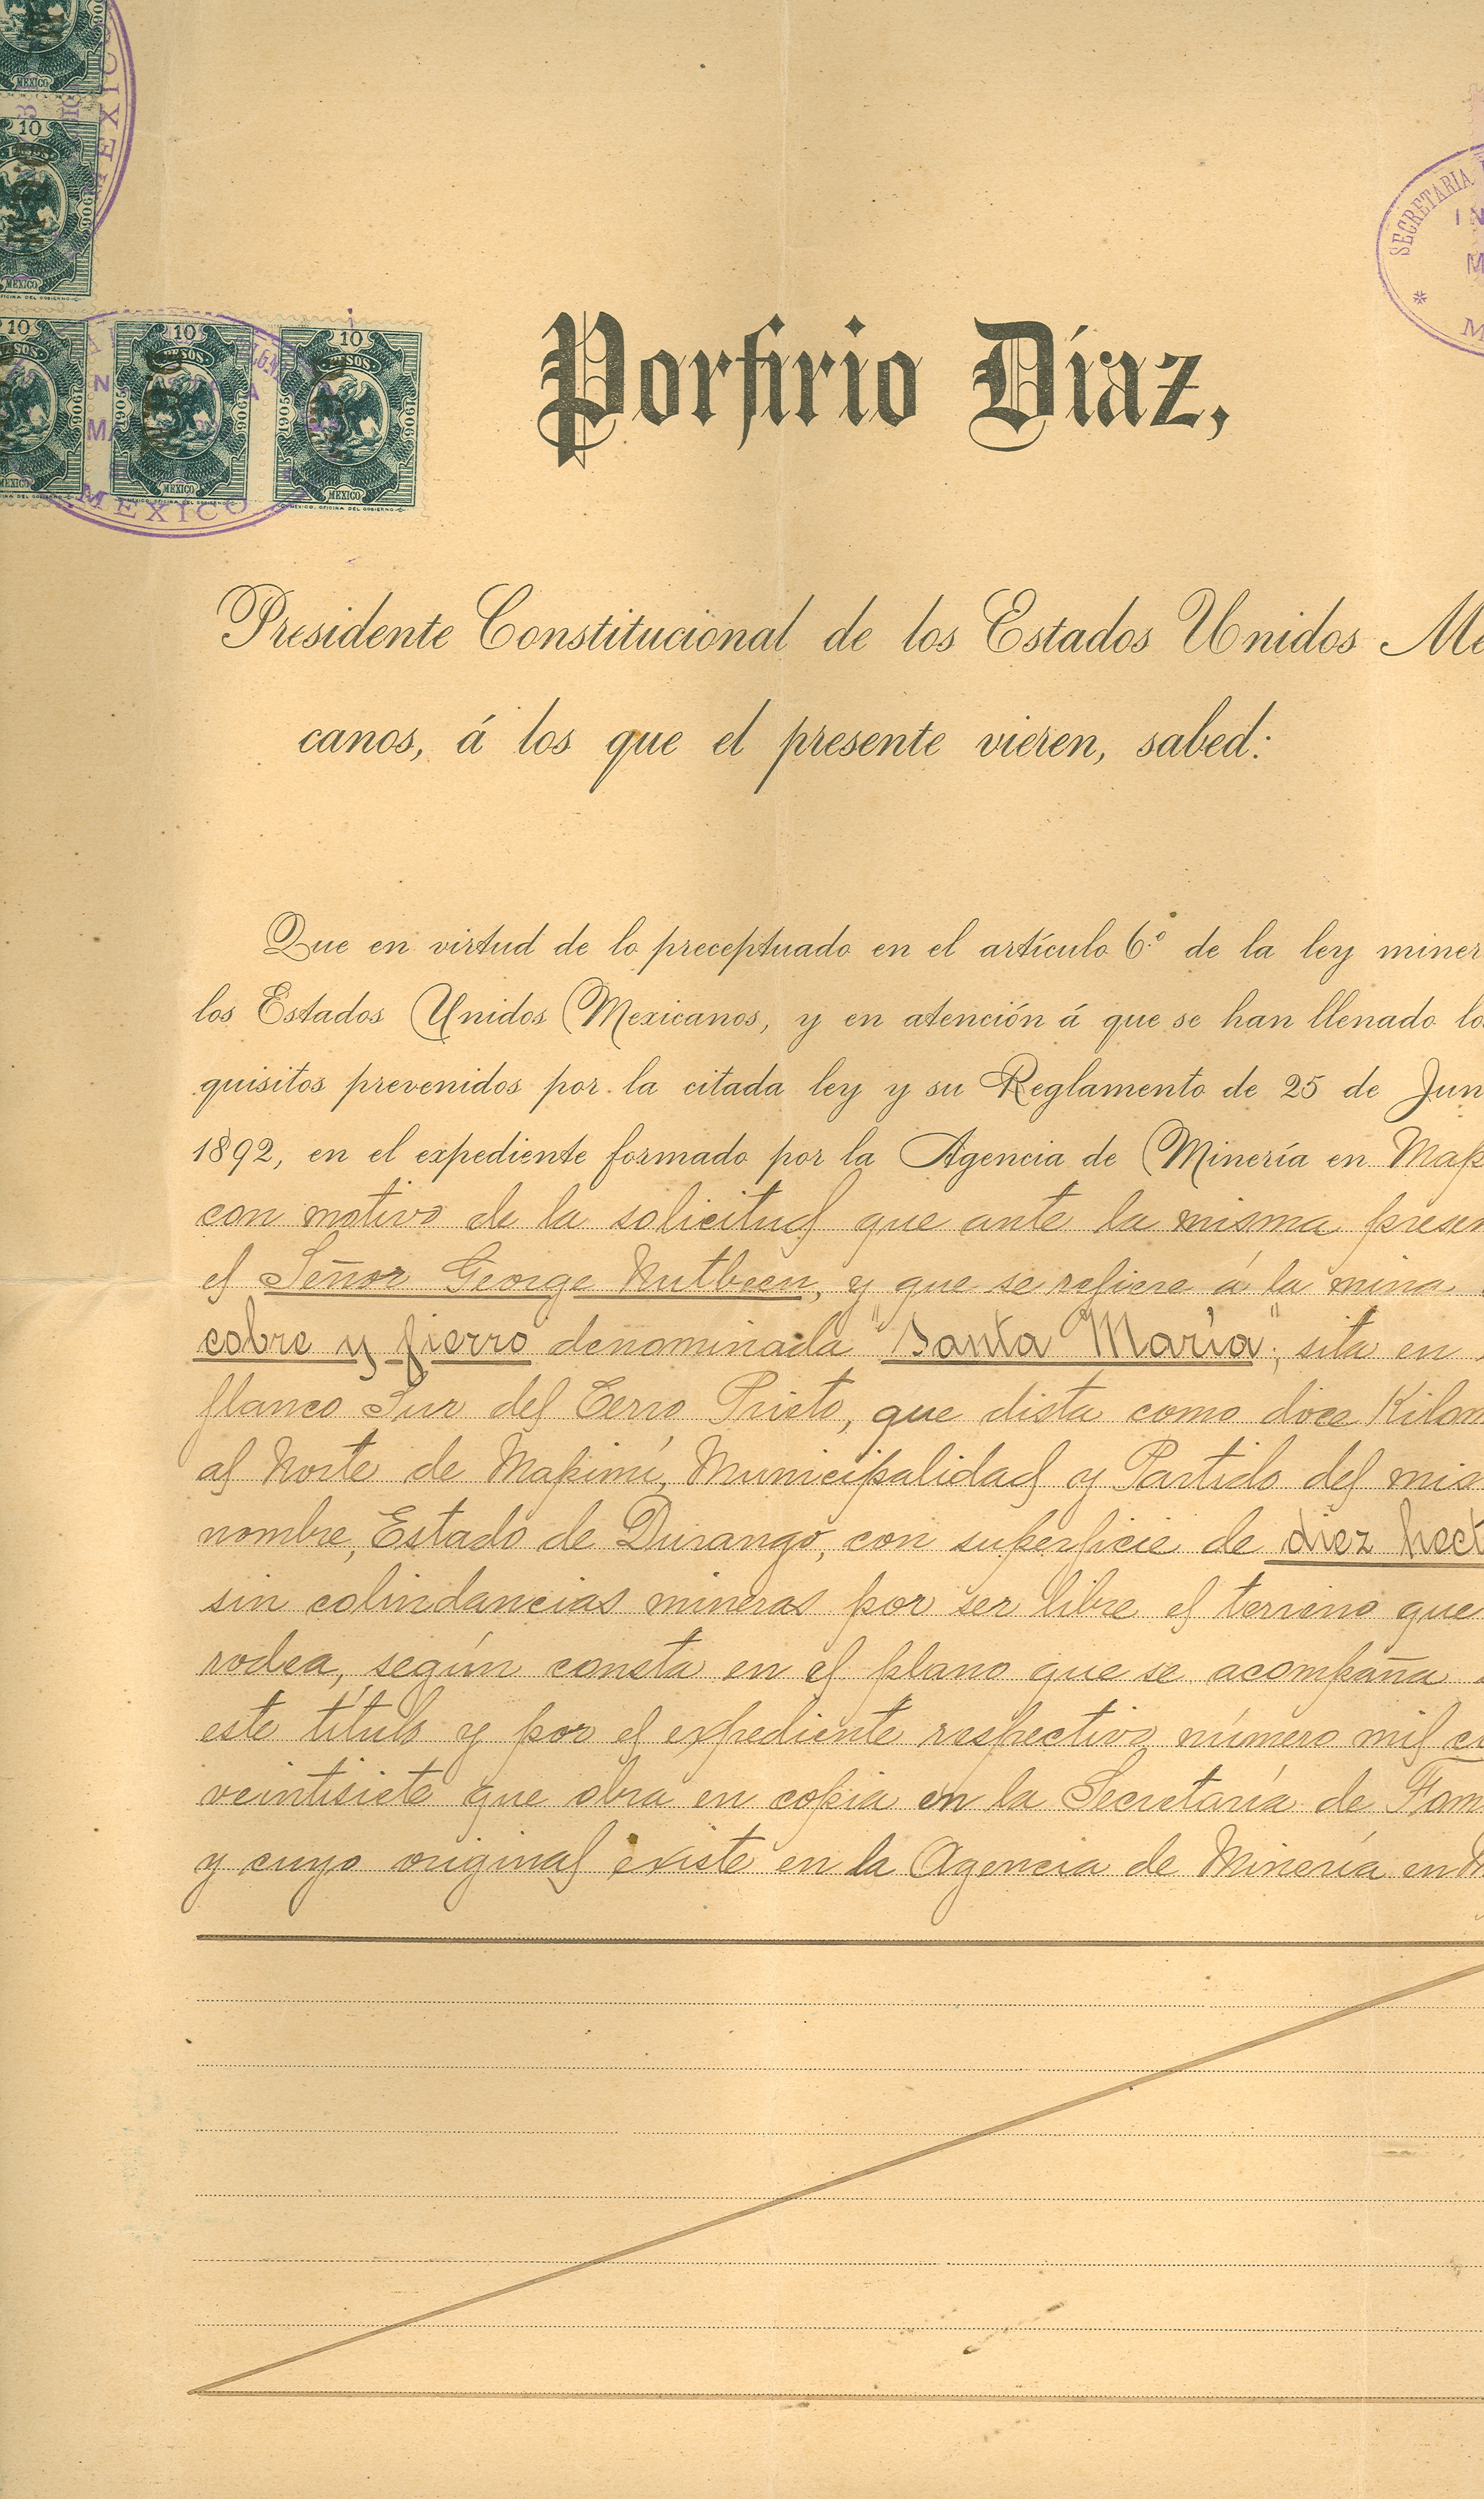 MEXICO
10
PESOS
1906
MEXICO
10 PESOS 1906 MEXICO
10 PESOS 1905 1906 MEXICO
10 PESOS 1905 1906 MEXICO
MEXICO, OFICINA DEL GOBIERNO
MEXICO
SECRETARIA
MEXICO
Porfirio Díaz,
Presidente Constitucional de los Estados Unidos Me
canos, á los que el presente vieren, sabed:
Que en virtud de lo preceptuado en el artículo 6.º de la ley miner
los Estados Unidos Mexicanos, y en atención á que se han llenado lo
quisitos prevenidos por la citada ley y su Reglamento de 25 de Jun
1892, en el expediente formado por la Agencia de Minería en Map
con motivo de la solicitud que ante la misma presen
el Señor George Nutbeen, y que se refiere á la mina
cobre y fierro denominada "Santa María", sita en
flanco Sur del Cerro Prieto, que dista como doce Kilom
al Norte de Mapimí, Municipalidad y Partido del mis
nombre, Estado de Durango, con superficie de diez hect
sin colindancias mineras por ser libre el terreno que
rodea, según consta en el plano que se acompaña
este título y por el expediente respectivo número mil
veintisiete que obra en copia en la Secretaría de Fom
y cuyo original existe en la Agencia de Minería en